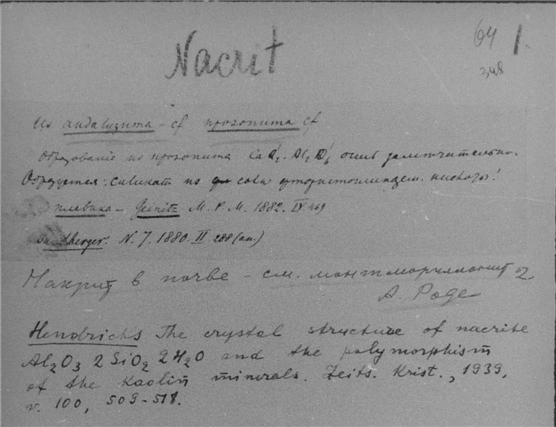 64 1.
348
Nacrit
Из андалузита - cf прозопита cf
Образование из прозопита очень замечательно.
Образуется силикат из соли
плавика - Geinitz M. P. M. 1882. IX 469
N. J. 1880. II 288 (an.)
Накрит в почве - см. монтмориллонит 02
А. Роде
Hendricks The crystal structure of nacrite
Al₂O₃ 2SiO₂ 2H₂O and the polymorphism
of the Kaolin minerals. Zeits. Krist., 1939,
v. 100, 509-518.